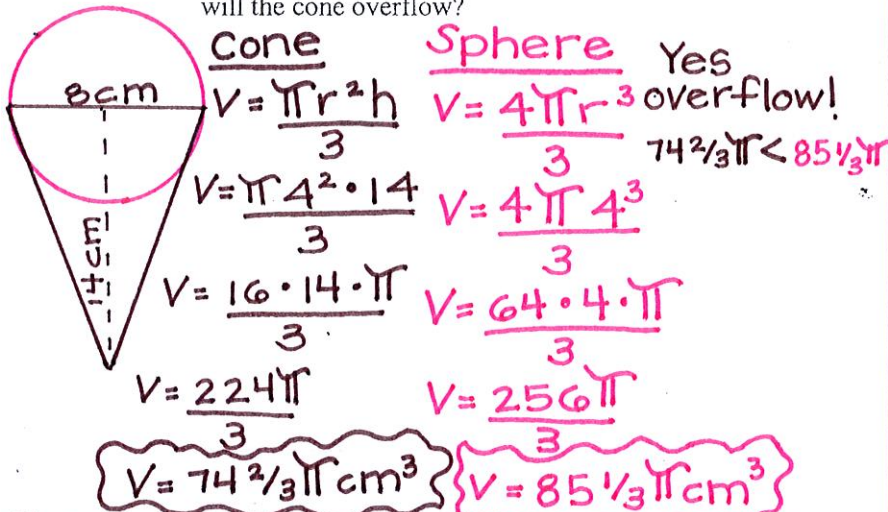 will the cone overflow?
Cone
V = πr²h
3
V = π4² • 14
3
V = 16 • 14 • π
3
V = 224π
3
V = 74 2/3 π cm³
Sphere
V = 4πr³
3
V = 4π 4³
3
V = 64 • 4 • π
3
V = 256π
3
V = 85 1/3 π cm³
Yes
overflow!
74 2/3 π < 85 1/3 π
8cm
14cm